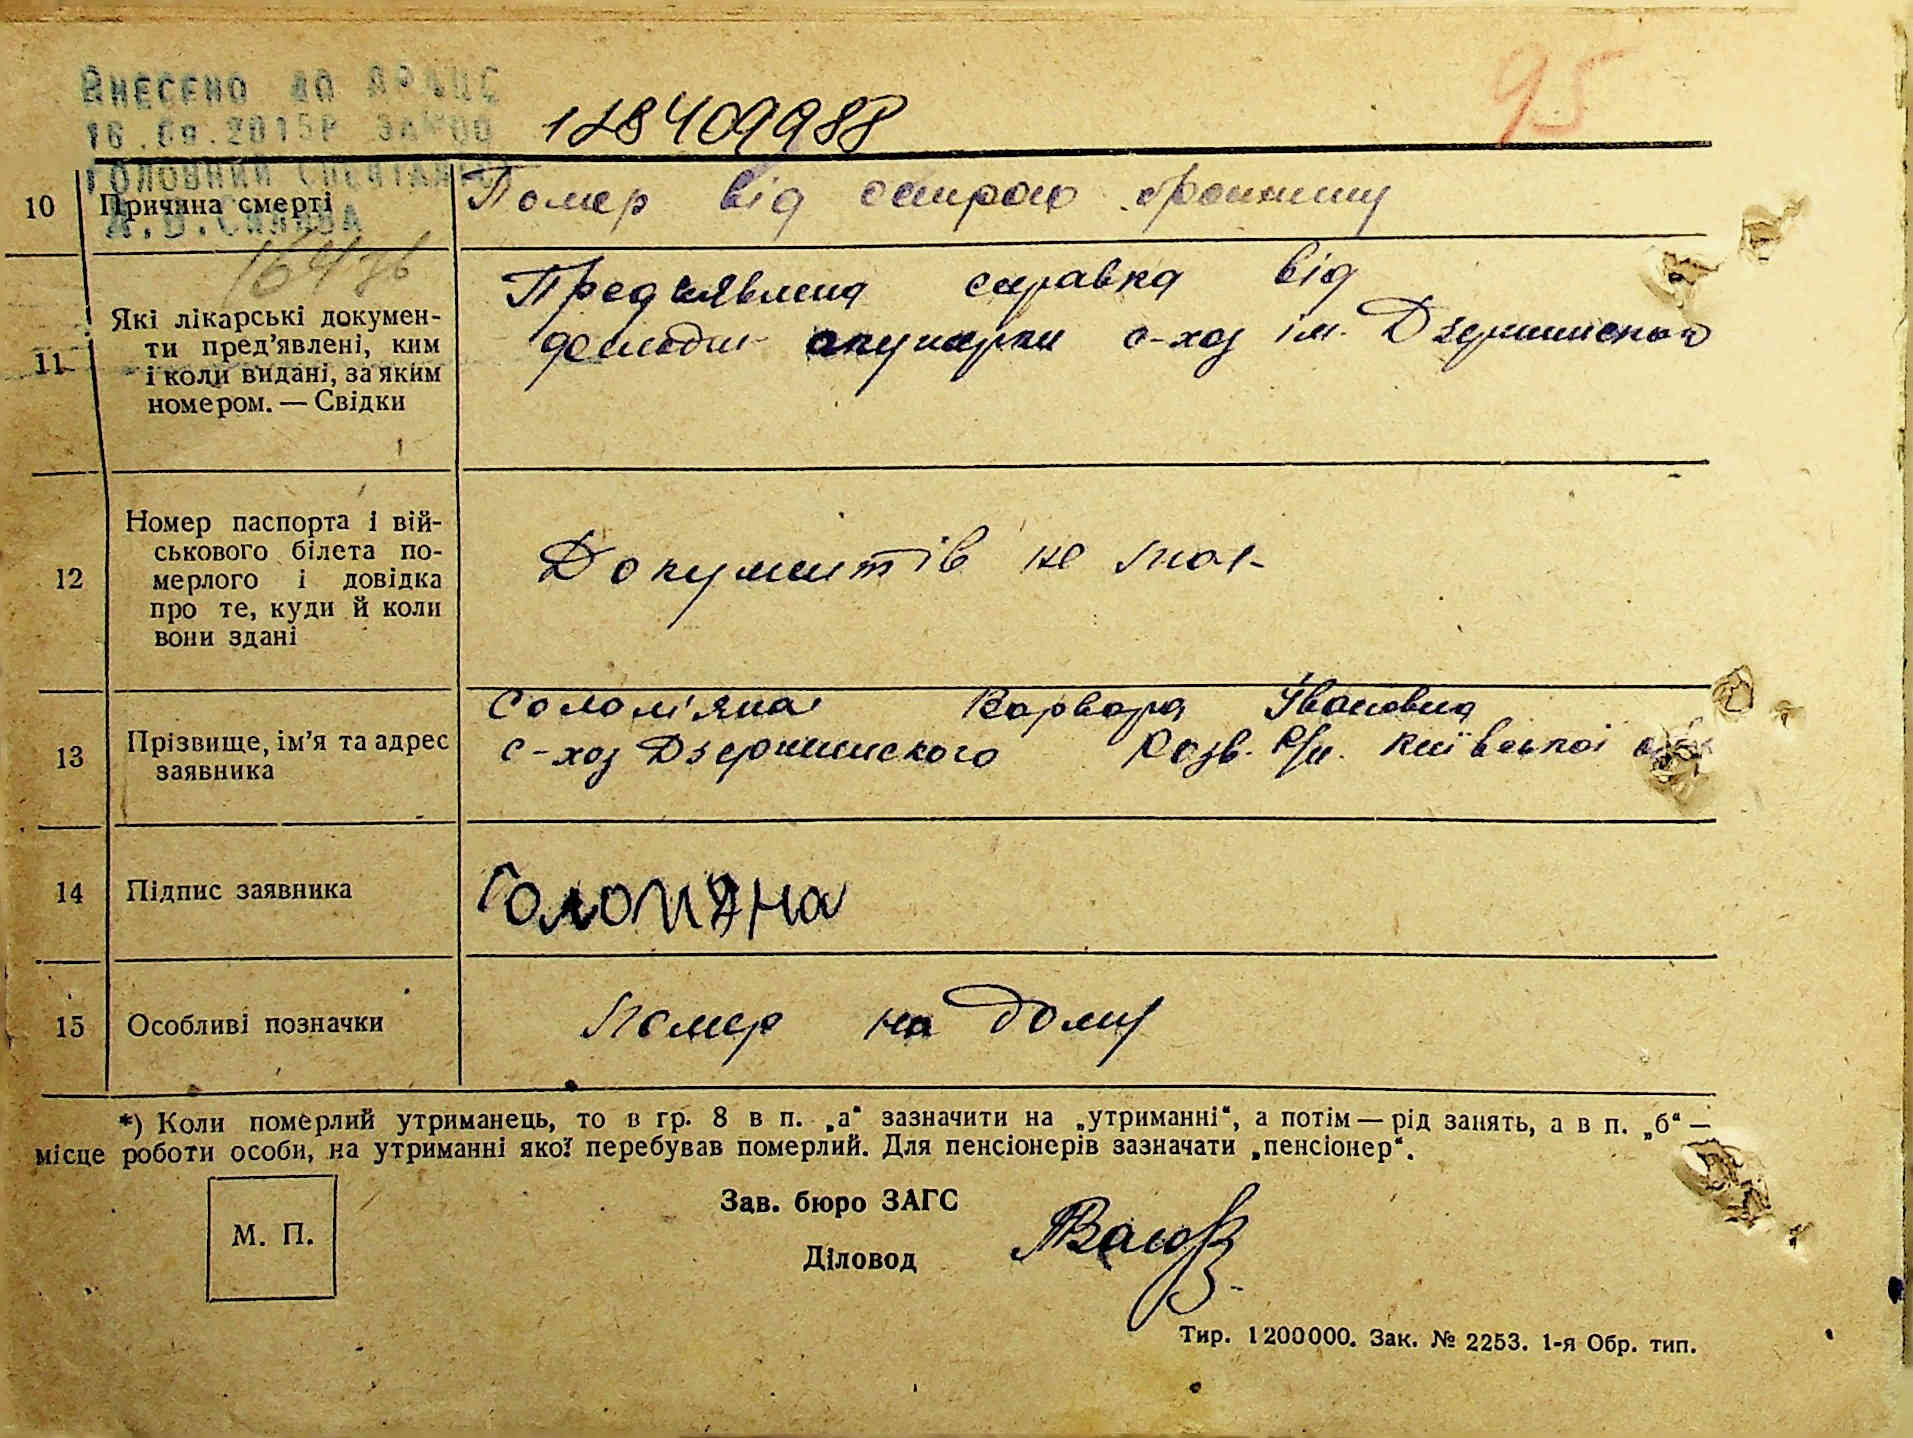 ВНЕСЕНО ДО ДРАЦС
16.09.2015Р
ГОЛОВНИЙ СПЕЦІАЛІСТ
95
128409988
10 Причина смерті
Помер від бронхиту
16476
11 Які лікарські докумен-
ти пред’явлені, ким
і коли видані, за яким
номером. — Свідки
Предъявлена справка від
акушерки с-хоз ім. Дзержинського
12 Номер паспорта і вій-
ськового білета по-
мерлого і довідка
про те, куди й коли
вони здані
Документів не має
13 Прізвище, ім’я та адрес
заявника
Солом'яна Варвара Івановна
с-хоз Дзержинского Розв. р/н. Київської обл
14 Підпис заявника
Соломяна
15 Особливі позначки
Помер на дому
*) Коли померлий утриманець, то в гр. 8 в п. „а“ зазначити на „утриманні“, а потім — рід занять, а в п. „б“ —
місце роботи особи, на утриманні якої перебував померлий. Для пенсіонерів зазначати „пенсіонер“.
М. П.
Зав. бюро ЗАГС
Діловод
Тир. 1200000. Зак. № 2253. 1-я Обр. тип.